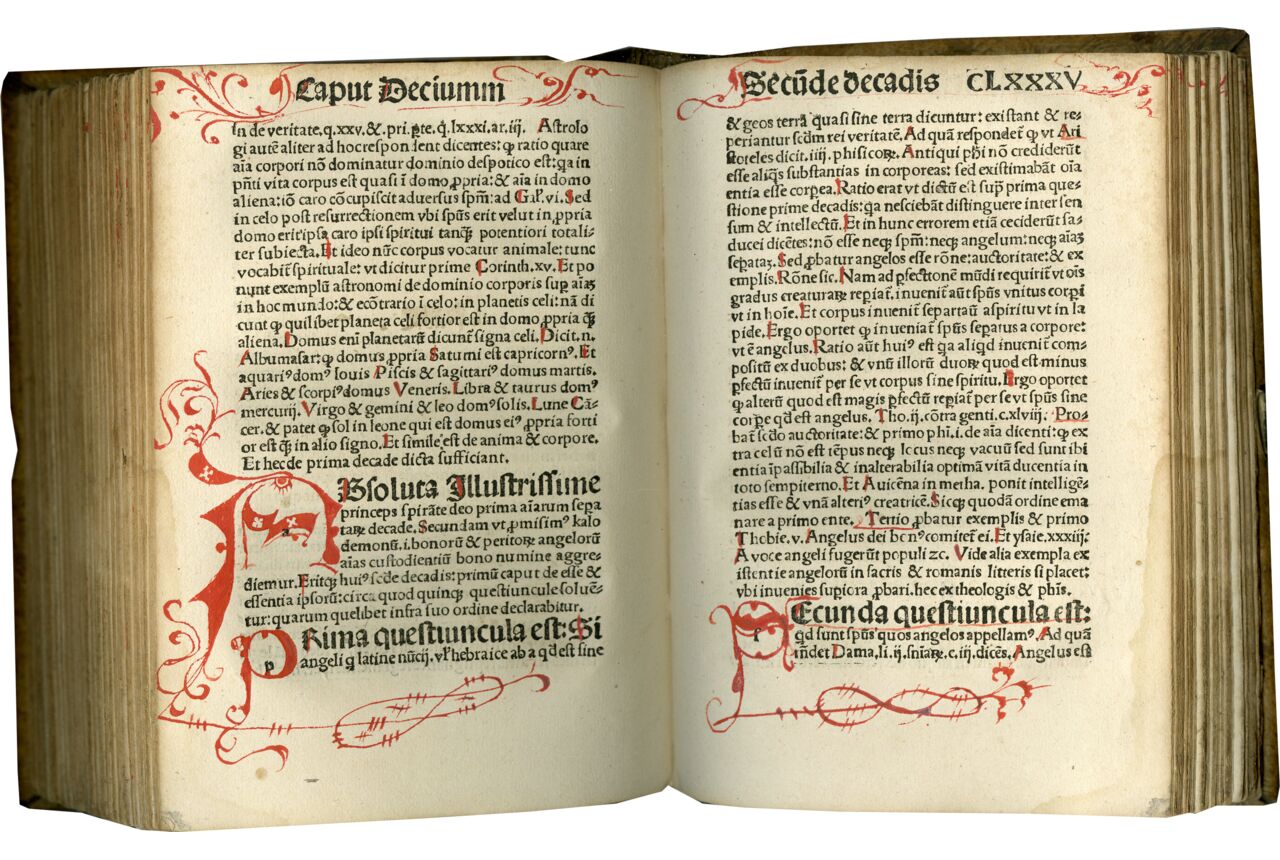 Caput Deciumm
In de veritate,q.xxv.&.pri.p̱te.q̇.lxxxi.ar.iij. Astrolo
gi autē aliter ad hoc respondent dicentes: ꝙ ratio quare
aīa corpori nō dominatur dominio despotico est:q̇a in
pn̄ti vita corpus est quasi ī domo ꝓpria:& aīa in domo
aliena:iō caro cōcupiscit adversus sp̄m:ad Gal̓.vi.Sed
in celo post resurrectionem vbi spūs erit velut in ꝓpria
domo erit ip̄a caro ipsi spiritui tanqꝫ potentiori totali-
ter subiecta.Et ideo nūc corpus vocatur animale:tunc
vocabit̄ spirituale: vt dicitur prime Corinth.xv.Et po
nunt exemplū astronomi de dominio corporis sup̱ aīaꝫ
in hoc mundo:& ecōtrario ī celo:in planetis celi:nā di
cunt ꝙ quilibet planeta celi fortior est in domo ꝓpria qꝫ̄
aliena.Domus enī planetarū dicunt̄ signa celi.Dicit.n.
Albumasar:ꝙ domus ꝓpria Saturni est capricornꝰ.Et
aquariꝰ domꝰ Iouis Piscis & sagittariꝰ domus martis.
Aries & scorpiꝰ domus Veneris.Libra & taurus domꝰ
mercurij.Virgo & gemini & leo domꝰ solis.Lune Cā-
cer.& patet ꝙ sol in leone qui est domus eiꝰ ꝓpria forti
or est qꝫ̄ in alio signo.Et simile est de anima & corpore.
Et hec de prima decade dicta sufficiant.
ABsoluta Illustrissime
princeps spirāte deo prima aīarum sepa
taꝝ decade.Secundam vt ꝓmisimꝰ kalo
demonū.i.bonorū & peritoꝝ angelorū
aīas custodientiū bono numine aggre-
diemur.Eritqꝫ huiꝰ scd̄e decadis:primū caput de esse &
essentia ipsorū:circa quod quinqꝫ questiuncule soluē-
tur:quarum quelibet infra suo ordine declarabitur.
PRima questiuncula est:Si
angeli q̇ latine nūcij.vl̓ hebraice ab a qd̄ est sine
Secūde decadis CLXXXV
& geos terrā quasi sine terra dicuntur: existant & re-
periantur scd̄m rei veritatē.Ad quā respondet̄ ꝙ vt Ari
stoteles dicit.iiij.phisicoꝝ.Antiqui phī nō crediderūt
esse aliq̄s substantias in corporeas: sed existimabāt oīa
entia esse corp̱ea.Ratio erat vt dictū est sup̱ prima que-
stione prime decadis:q̇a nesciebāt distinguere inter sen
sum & intellectū.Et in hunc errorem etiā ceciderūt sa-
ducei dicētes:nō esse neqꝫ sp̄m:neqꝫ angelum:neqꝫ aīaꝫ
sep̱ataꝫ.Sed ꝓbatur angelos esse rōne:auctoritate:& ex
emplis.Rōne sic.Nam ad p̱fectionē mūdi requirit̄ vt oīs
gradus creaturaꝝ rep̱iat̄.inuenit̄ aūt spūs vnitus corp̱i
vt in hoīe.Et corpus inuenit̄ separatū a spiritu vt in la
pide.Ergo oportet ꝙ inueniat̄ spūs sep̱atus a corpore:
vt ē angelus.Ratio aūt huiꝰ est q̇a aliqd̄ inuenit̄ com-
positū ex duobus: & vnū illorū duoꝝ quod est minus
p̱fectū inuenit̄ per se vt corpus sine spiritu.Ergo oportet
ꝙ alterū quod est magis p̱fectū rep̱iat̄ per se vt spūs sine
corp̱e qd̄ est angelus.Tho.ij.cōtra genti.c.xlviij. Pro-
bat̄ scd̄o auctoritate:& primo phī.i.de aīa dicenti:ꝙ ex
tra celū nō est tēpus neqꝫ locus neqꝫ vacuū sed sunt ibi
entia īpassibilia & inalterabilia optimā vitā ducentia in
toto sempiterno.Et Auicēna in metha. ponit intelligē-
tias esse & vnā alteriꝰ creatricē.Sicqꝫ quodā ordine ema
nare a primo ente. Tertio ꝓbatur exemplis & primo
Thobie.v.Angelus dei bonꝰ comitet̄ ei.Et ysaie.xxxiij:
A voce angeli fugerūt populi ⁊c. Vide alia exempla ex
istentie angelorū in sacris & romanis litteris si placet:
vbi inuenies sup̱iora ꝓbari.hec ex theologis & phīs.
SEcunda questiuncula est:
qd̄ sunt spūs quos angelos appellamꝰ.Ad quā
rn̄det Dama,li.ij.sn̄iaꝝ.c.iij.dicēs,Angelus est